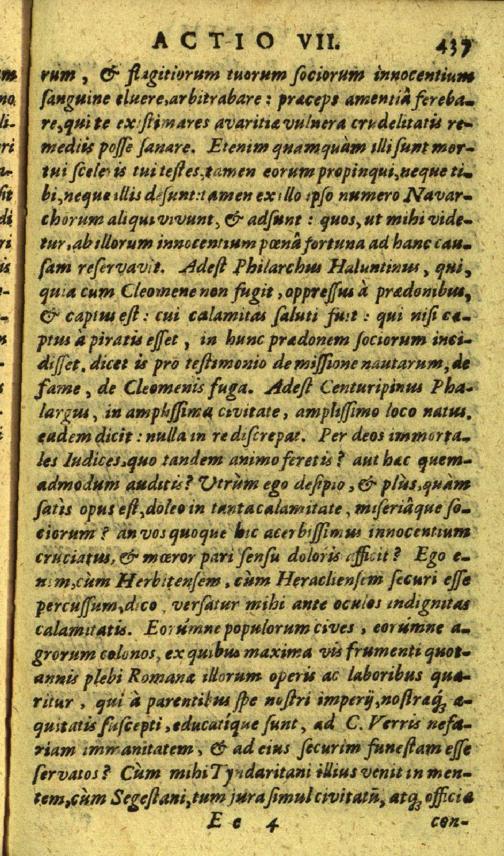 ACTIO VII. 437
rum, & flagitiorum tuorum sociorum innocentium
sanguine eluere, arbitrabare: præceps amentiâ fereba-
re, qui te existimares avaritiæ vulnera crudelitatis re-
mediis posse sanare. Etenim quamquàm illi sunt mor-
tui sceleris tui testes, tamen eorum propinqui, neque ti-
bi, neque illis desunt: tamen ex illo ipso numero Navar-
chorum aliqui vivunt, & adsunt: quos, ut mihi vide-
tur, ab illorum innocentium pœnâ fortuna ad hanc cau-
sam reservavit. Adest Philarchus Haluntinus, qui,
quia cum Cleomene non fugit, oppressus à prædonibus,
& captus est: cui calamitas saluti fuit: qui nisi ca-
ptus à piratis esset, in hunc prædonem sociorum inci-
disset, dicet is pro testimonio de missione nautarum, de
fame, de Cleomenis fuga. Adest Centuripinus Pha-
largus, in amplissima civitate, amplissimo loco natus,
eadem dicit: nulla in re discrepat. Per deos immorta-
les Iudices, quo tandem animo feretis? aut hæc quem-
admodum auditis? Utrùm ego desipio, & plùs, quàm
satis opus est, doleo in tanta calamitate, miseriâque so-
ciorum? an vos quoque hic acerbissimus innocentium
cruciatus, & mœror pari sensu doloris afficit? Ego e-
nim, cùm Herbitensem, cùm Heracliensem securi esse
percussum, dico, versatur mihi ante oculos indignitas
calamitatis. Eorúmne populorum cives, eorúmne a-
grorum colonos, ex quibus maxima vis frumenti quot-
annis plebi Romanæ illorum operis ac laboribus quæ-
ritur, qui à parentibus spe nostri imperij, nostraq́; æ-
quitatis suscepti, educatique sunt, ad C. Verris nefa-
riam immanitatem, & ad eius securim funestam esse
servatos? Cùm mihi Tyndaritani illius venit in men-
tem, cùm Segestani, tum jura simul civitatũ, atq; officia
E e 4 con-